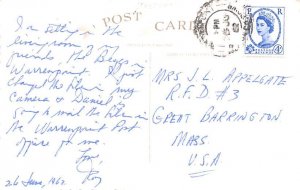 POST CARD
I am sitting in the
living room
friends, the Beggs in
Warrenpoint. I just
changed the film in my
camera & Daniel is
going to mail the film in
the Warrenpoint Post
office for me.
Love,
Roy
26 June, 1962
MRS J. L. APPELGATE
R.F.D #3
GREAT BARRINGTON
MASS.
U.S.A